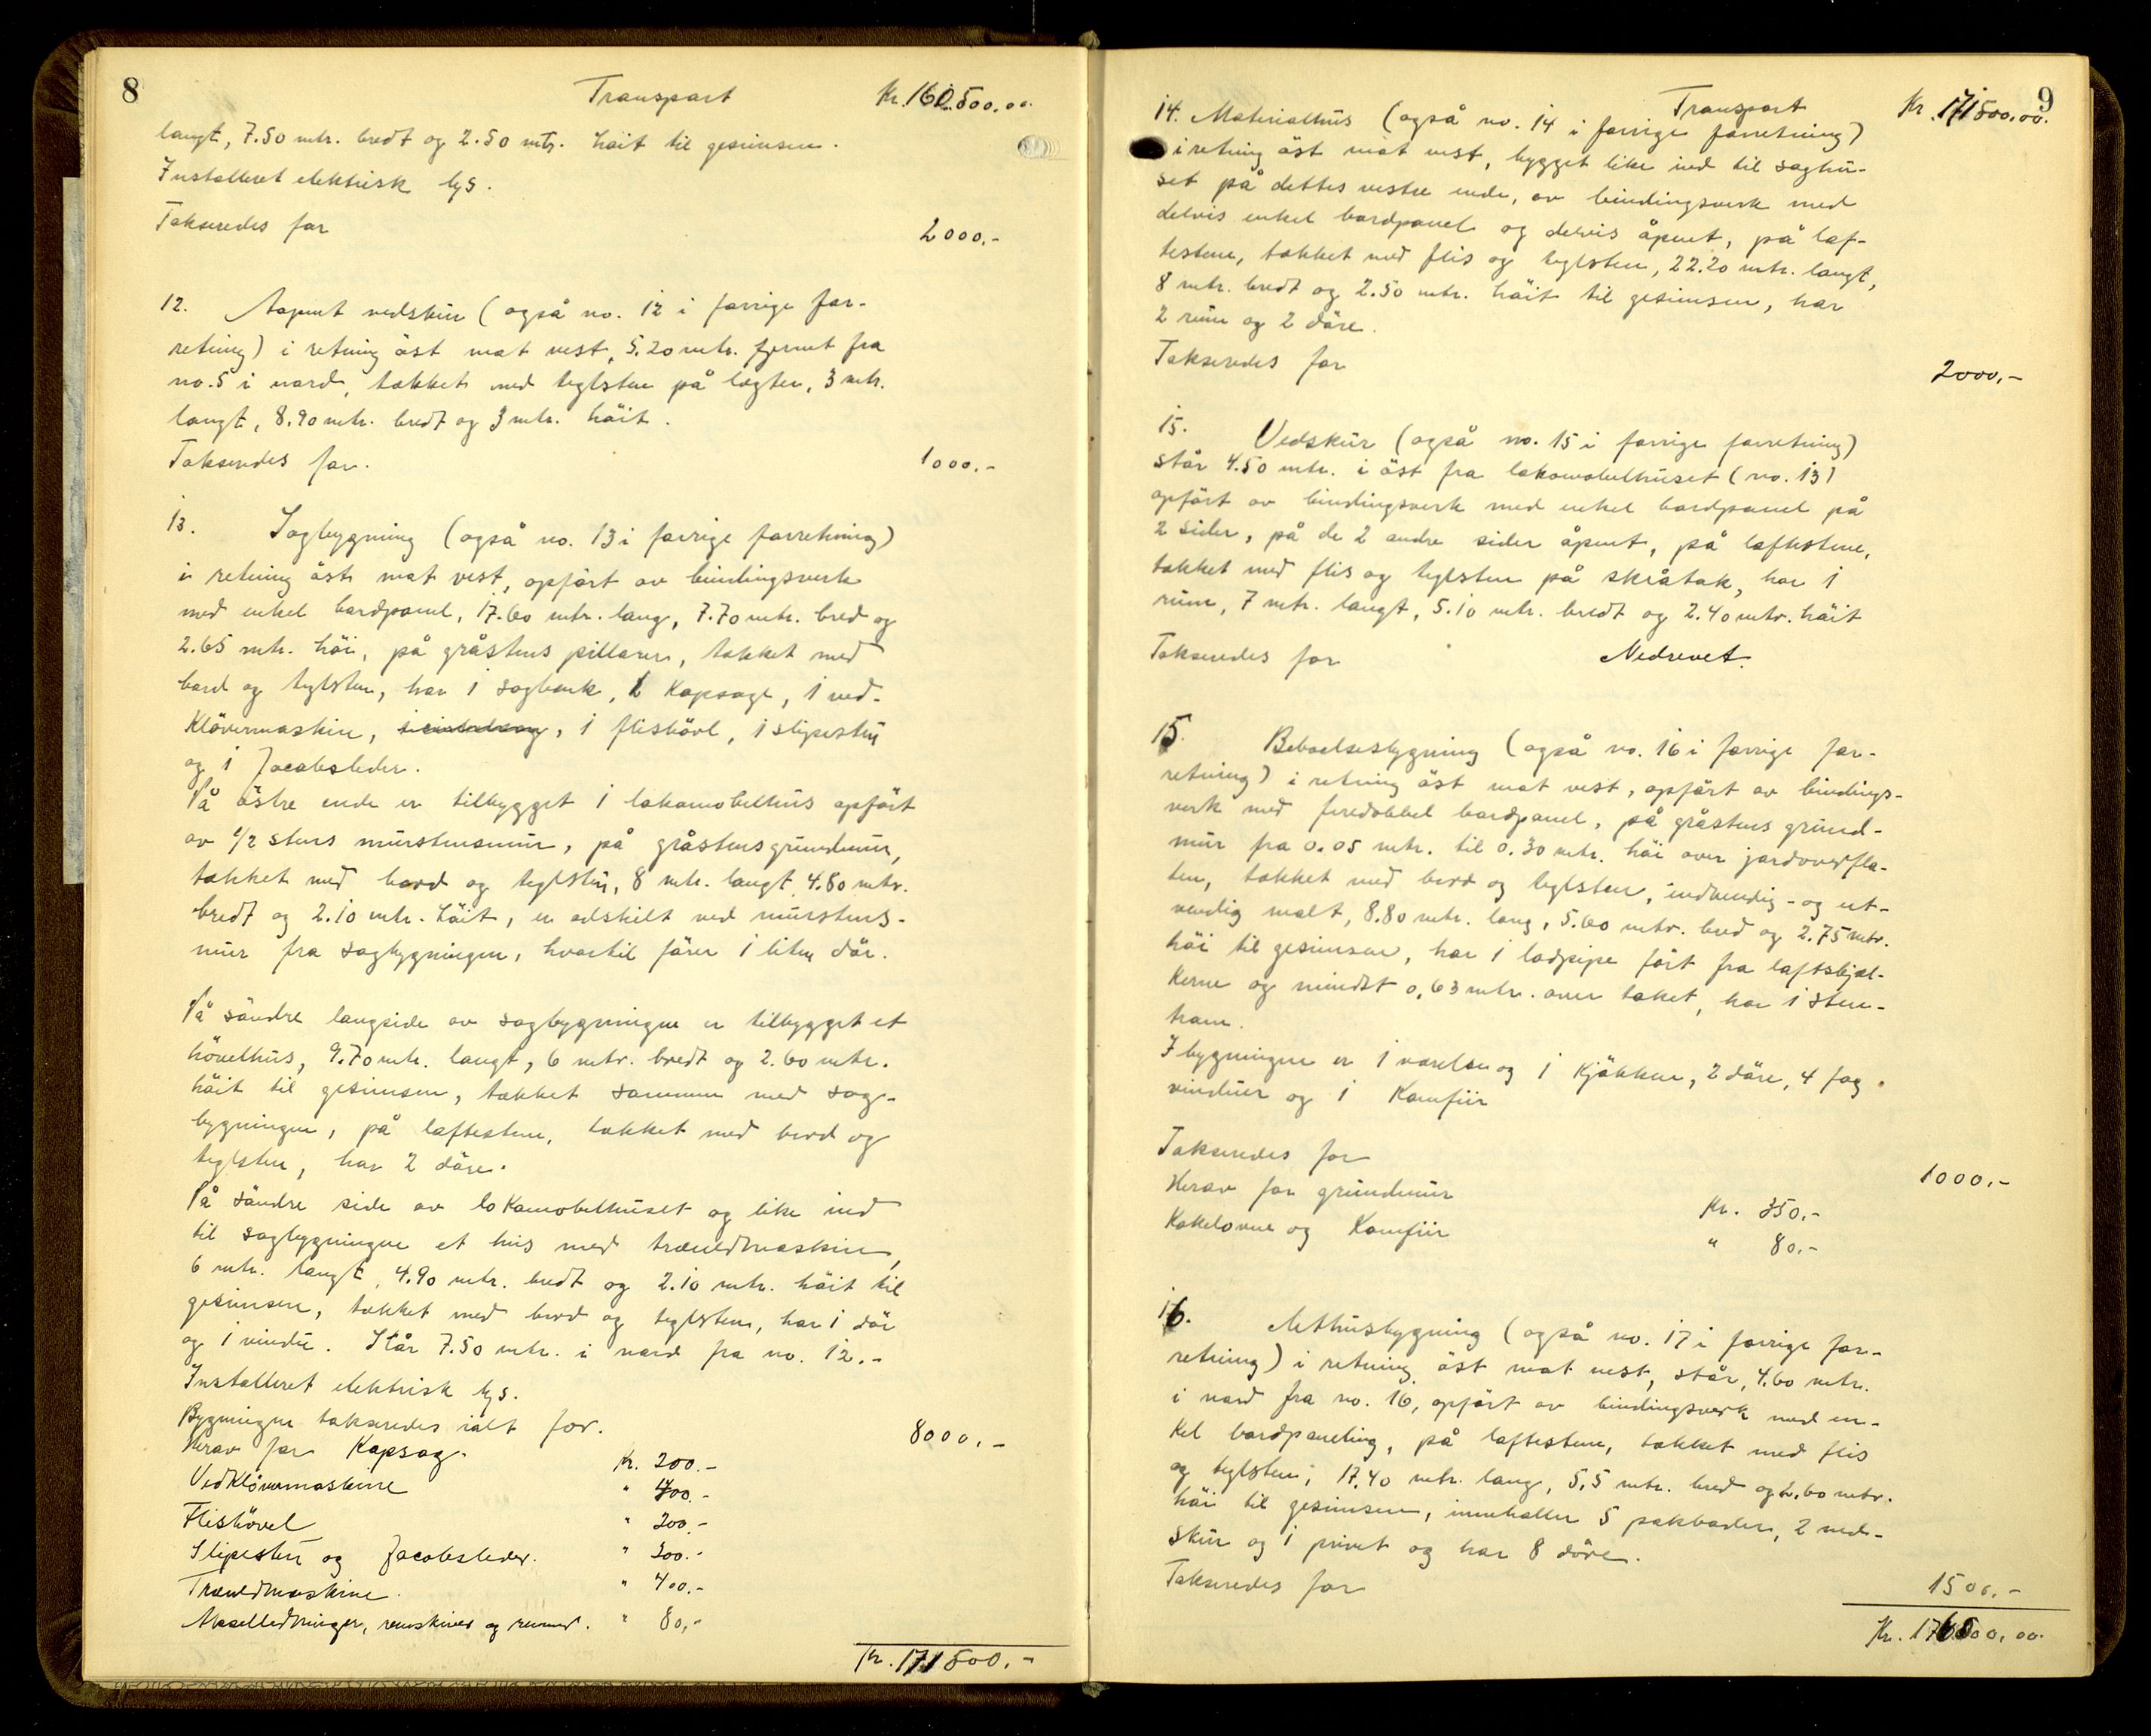 8
Transport Kr. 160.500.00.
langt, 7.50 mtr. bredt og 2.50 mtr. höit til gesimsen.
Installeret elektrisk lys.
Takseredes for 2000.-
12. Aapent vedskur (også no. 12 i forrige for-
retning) i retning öst mot vest, 5.20 mtr. fjernet fra
no. 5 i nord, tækket med teglsten på lægter, 3 mtr.
langt, 8.90 mtr. bredt og 3 mtr. höit.
Takseredes for. 1000.-
13. Sagbygning (også no. 13 i forrige forretning)
i retning öst mot vest, opfört av bindingsverk
med enkel bordpanel, 17.60 mtr. lang, 7.70 mtr. bred og
2.65 mtr. höi, på gråstens pillarer, tækket med
bord og teglsten, har 1 sagbenk, 1 Kapsage, 1 ved-
Klövermaskine, , 1 flishövl, 1 slipesten
og 1 Jacobsleder.
På östre ende er tilbygget 1 lokomobelhus opfört
av 1/2 stens murstensmur, på gråstensgrundmur,
tækket med bord og teglsten, 8 mtr. langt 4.80 mtr.
bredt og 2.10 mtr. höit, er adskilt ved murstens-
mur fra sagbygningen, hvortil förer 1 liten dör.
På söndre langside av sagbygningen er tilbygget et
hövelhus, 9.70 mtr. langt, 6 mtr. bredt og 2.60 mtr.
höit til gesimsen, tækket sammen med sag-
bygningen, på loftestene, tækket med bord og
teglsten, har 2 döre.
På söndre side av loKomobelhuset og like ind
til sagbygningen et hus med træuldmaskin,
6 mtr. langt, 4.90 mtr. bredt og 2.10 mtr. höit til
gesimsen, tækket med bord og teglsten, har 1 dör
og 1 vindu. Står 7.50 mtr. i nord fra no. 12.-
Installeret elektrisk lys.
Bygningen takseredes ialt for. 8000.-
Herav for Kapsag. Kr. 200.-
VedKlövermaskine " 400.-
Flishövel " 200.-
Slipesten og Jacobsleder. " 300.-
Træuldmaskine. " 400.-
Akselledninger, remskiver og remmer. " 80.-
Kr. 171500.-
9
Transport Kr. 171500.00.
14. Materialhus (også no. 14 i forrige forretning)
i retning öst mot vest, bygget like ind til saghu-
set på dettes vestre ende, av bindingsverk med
delvis enkel bordpanel og delvis åpent, på lof-
testene, tækket med flis og teglsten, 22.20 mtr. langt,
8 mtr. bredt og 2.50 mtr. höit til gesimsen, har
2 rum og 2 döre.
Takseredes for 2000.-
15. Vedskur (også no. 15 i forrige forretning)
står 4.50 mtr. i öst fra lokomobelhuset (no. 13)
opfört av bindingsverk med enkel bordpanel på
2 sider, på de 2 andre sider åpent, på loftestene,
tækket med flis og teglsten på skråtak, har 1
rum, 7 mtr. langt, 5.10 mtr. bredt og 2.40 mtr. höit
Takseredes for Nedrevet.
15. Beboelsesbygning (også no. 16 i forrige for-
retning) i retning öst mot vest, opfört av bindings-
verk med firedobbel bordpanel, på gråstens grund-
mur fra 0.05 mtr. til 0.30 mtr. höi over jordoverfla-
ten, tækket med bord og teglsten, indvendig- og ut-
vendig malt, 8.80 mtr. lang, 5.60 mtr. bred og 2.75 mtr.
höi til gesimsen, har 1 lodpipe fört fra loftsbjæl-
kerne og mindst 0,63 mtr. over taket, har 1 sten-
tram.
I bygningen er 1 værelse og 1 Kjökken, 2 döre, 4 fag
vinduer og 1 Komfür
Takseredes for 1000.-
Herav for grundmur Kr. 350.-
Kakelovne og Komfür " 80.-
16. Uthusbygning (også no. 17 i forrige for-
retning) i retning öst mot vest, står 4.60 mtr.
i nord fra no. 16, opfört av bindingsverk med en-
kel bordpaneling, på loftestene, tækket med flis
og teglsten, 17.40 mtr. lang, 5,5 mtr. bred og 2.60 mtr.
höi til gesimsen, inneholder 5 pakboder, 2 ved-
skur og 1 privet og har 8 döre.
Takseredes for 1500.-
Kr. 176000.00.